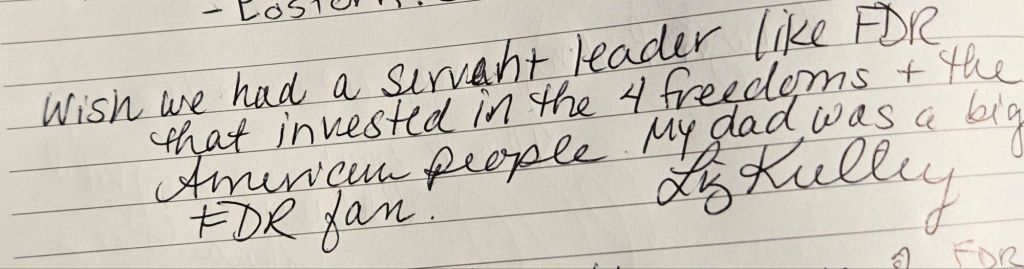 Wish we had a servant leader like FDR
that invested in the 4 freedoms + the
American people. My dad was a big
FDR fan. Liz Kulley
FDR